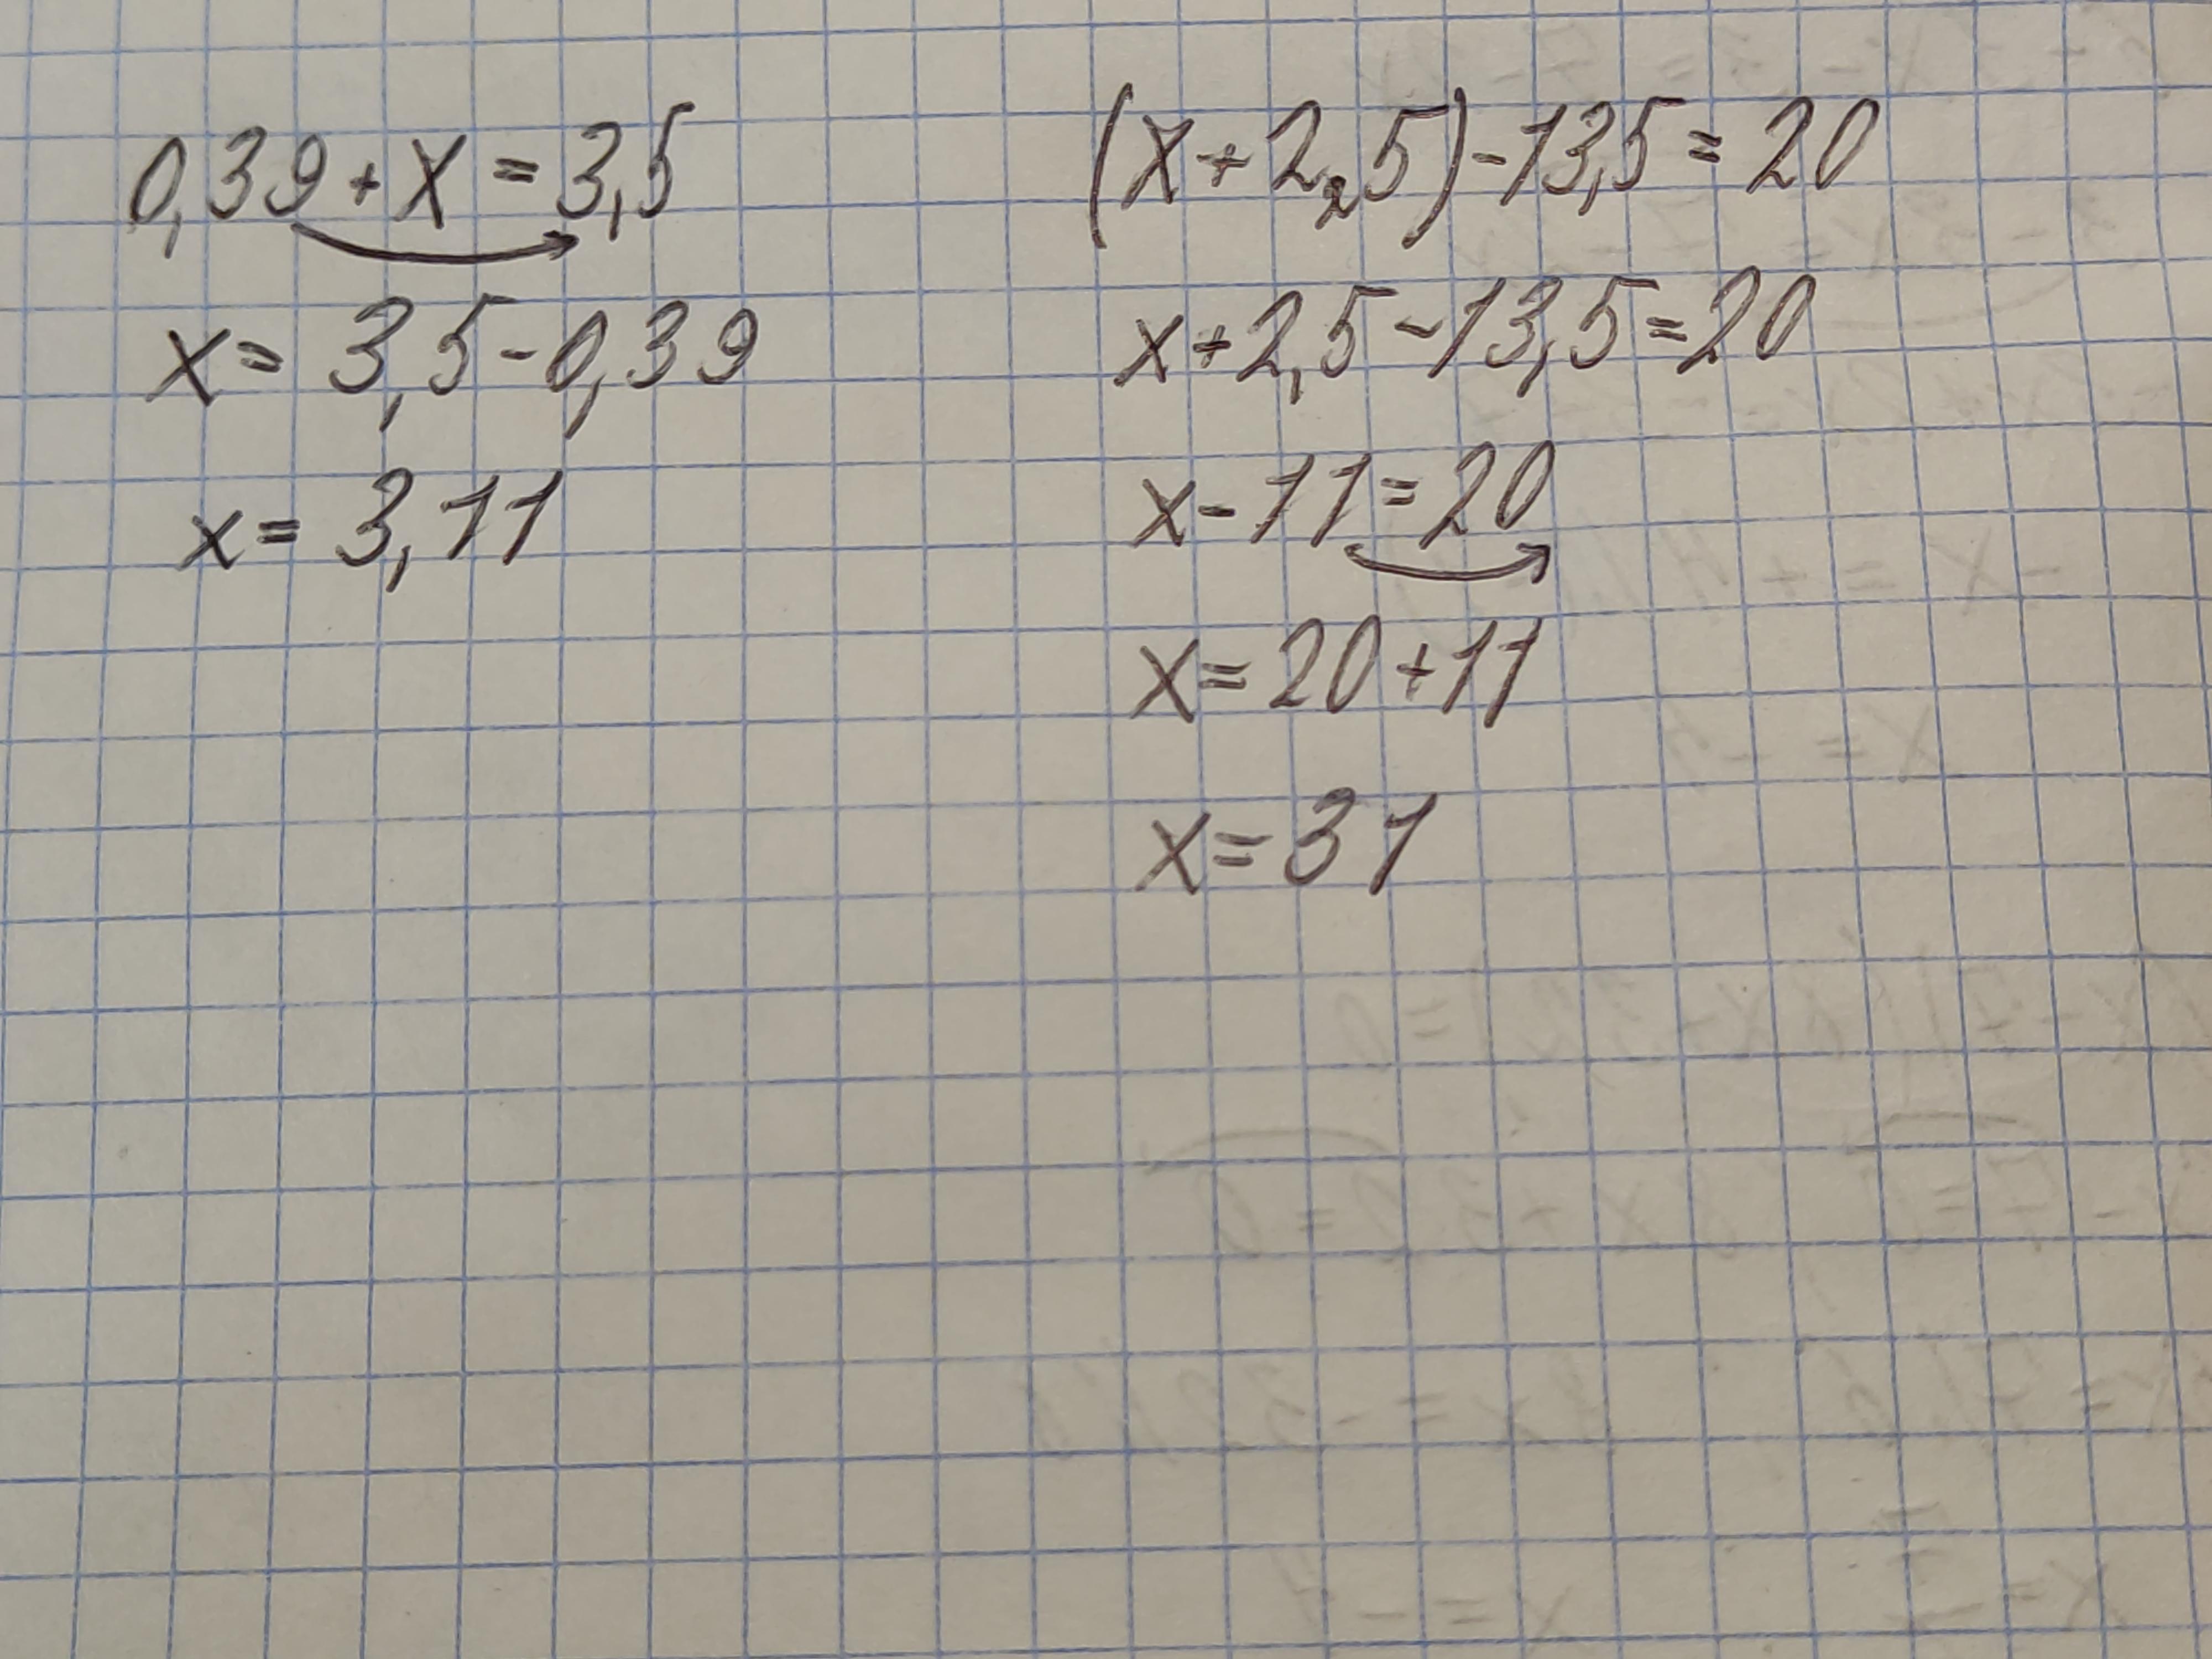 0,39 + x = 3,5
x = 3,5 - 0,39
x = 3,11
(x + 2,5) - 13,5 = 20
x + 2,5 - 13,5 = 20
x - 11 = 20
x = 20 + 11
x = 31